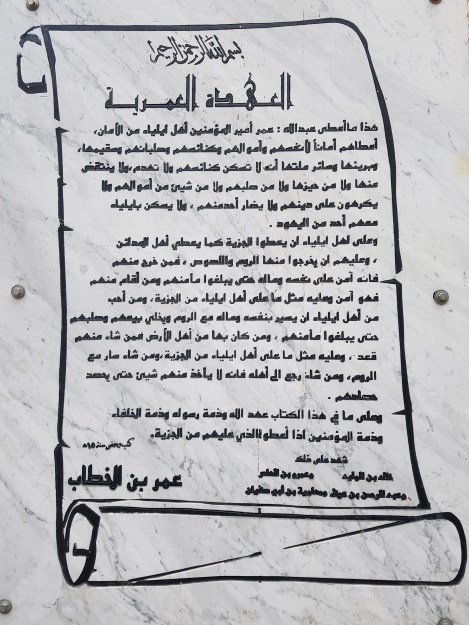 بسم الله الرحمن الرحيم
العهدة العمرية
هذا ما أعطى عبدالله : عمر أمير المؤمنين أهل ايلياء من الأمان،
أعطاهم أماناً لأنفسهم وأموالهم وكنائسهم وصلبانهم وسقيمها،
وبريئها وسائر ملتها أنه لا تسكن كنائسهم ولا تهدم،ولا ينتقص
منها ولا من حيزها ولا من صلبهم ولا من شيئ من أموالهم ولا
يكرهون على دينهم ولا يضار أحدمنهم ، ولا يسكن بايلياء
معهم أحد من اليهود .
وعلى اهل ايلياء ان يعطوا الجزية كما يعطي أهل المدائن
، وعليهم ان يخرجوا منها الروم واللصوص ، فمن خرج منهم
فانه آمن على نفسه وماله حتى يبلغوا مأمنهم ومن أقام منهم
فهو آمن وعليه مثل ما على أهل ايلياء من الجزية، ومن أحب
من أهل ايلياء ان يسير بنفسه وماله مع الروم ويخلي بيعهم وصلبهم
حتى يبلغوا مأمنهم ، ومن كان بها من أهل الأرض فمن شاء منهم
قعد ، وعليه مثل ما على أهل ايلياء من الجزية،ومن شاء سار مع
الروم، ومن شاء رجع الى أهله فانه لا يأخذ منهم شيئ حتى يحصد
حصادهم .
وعلى ما في هذا الكتاب عهد الله وذمة رسوله وذمة الخلفاء
وذمة المؤمنين اذا أعطوا الذي عليهم من الجزية.
كتب وحضر سنة ١٥هـ
شهد على ذلك
خالد بن الوليد وعمرو بن العاص
وعبد الرحمن بن عوف ومعاوية بن أبي سفيان
عمر بن الخطاب